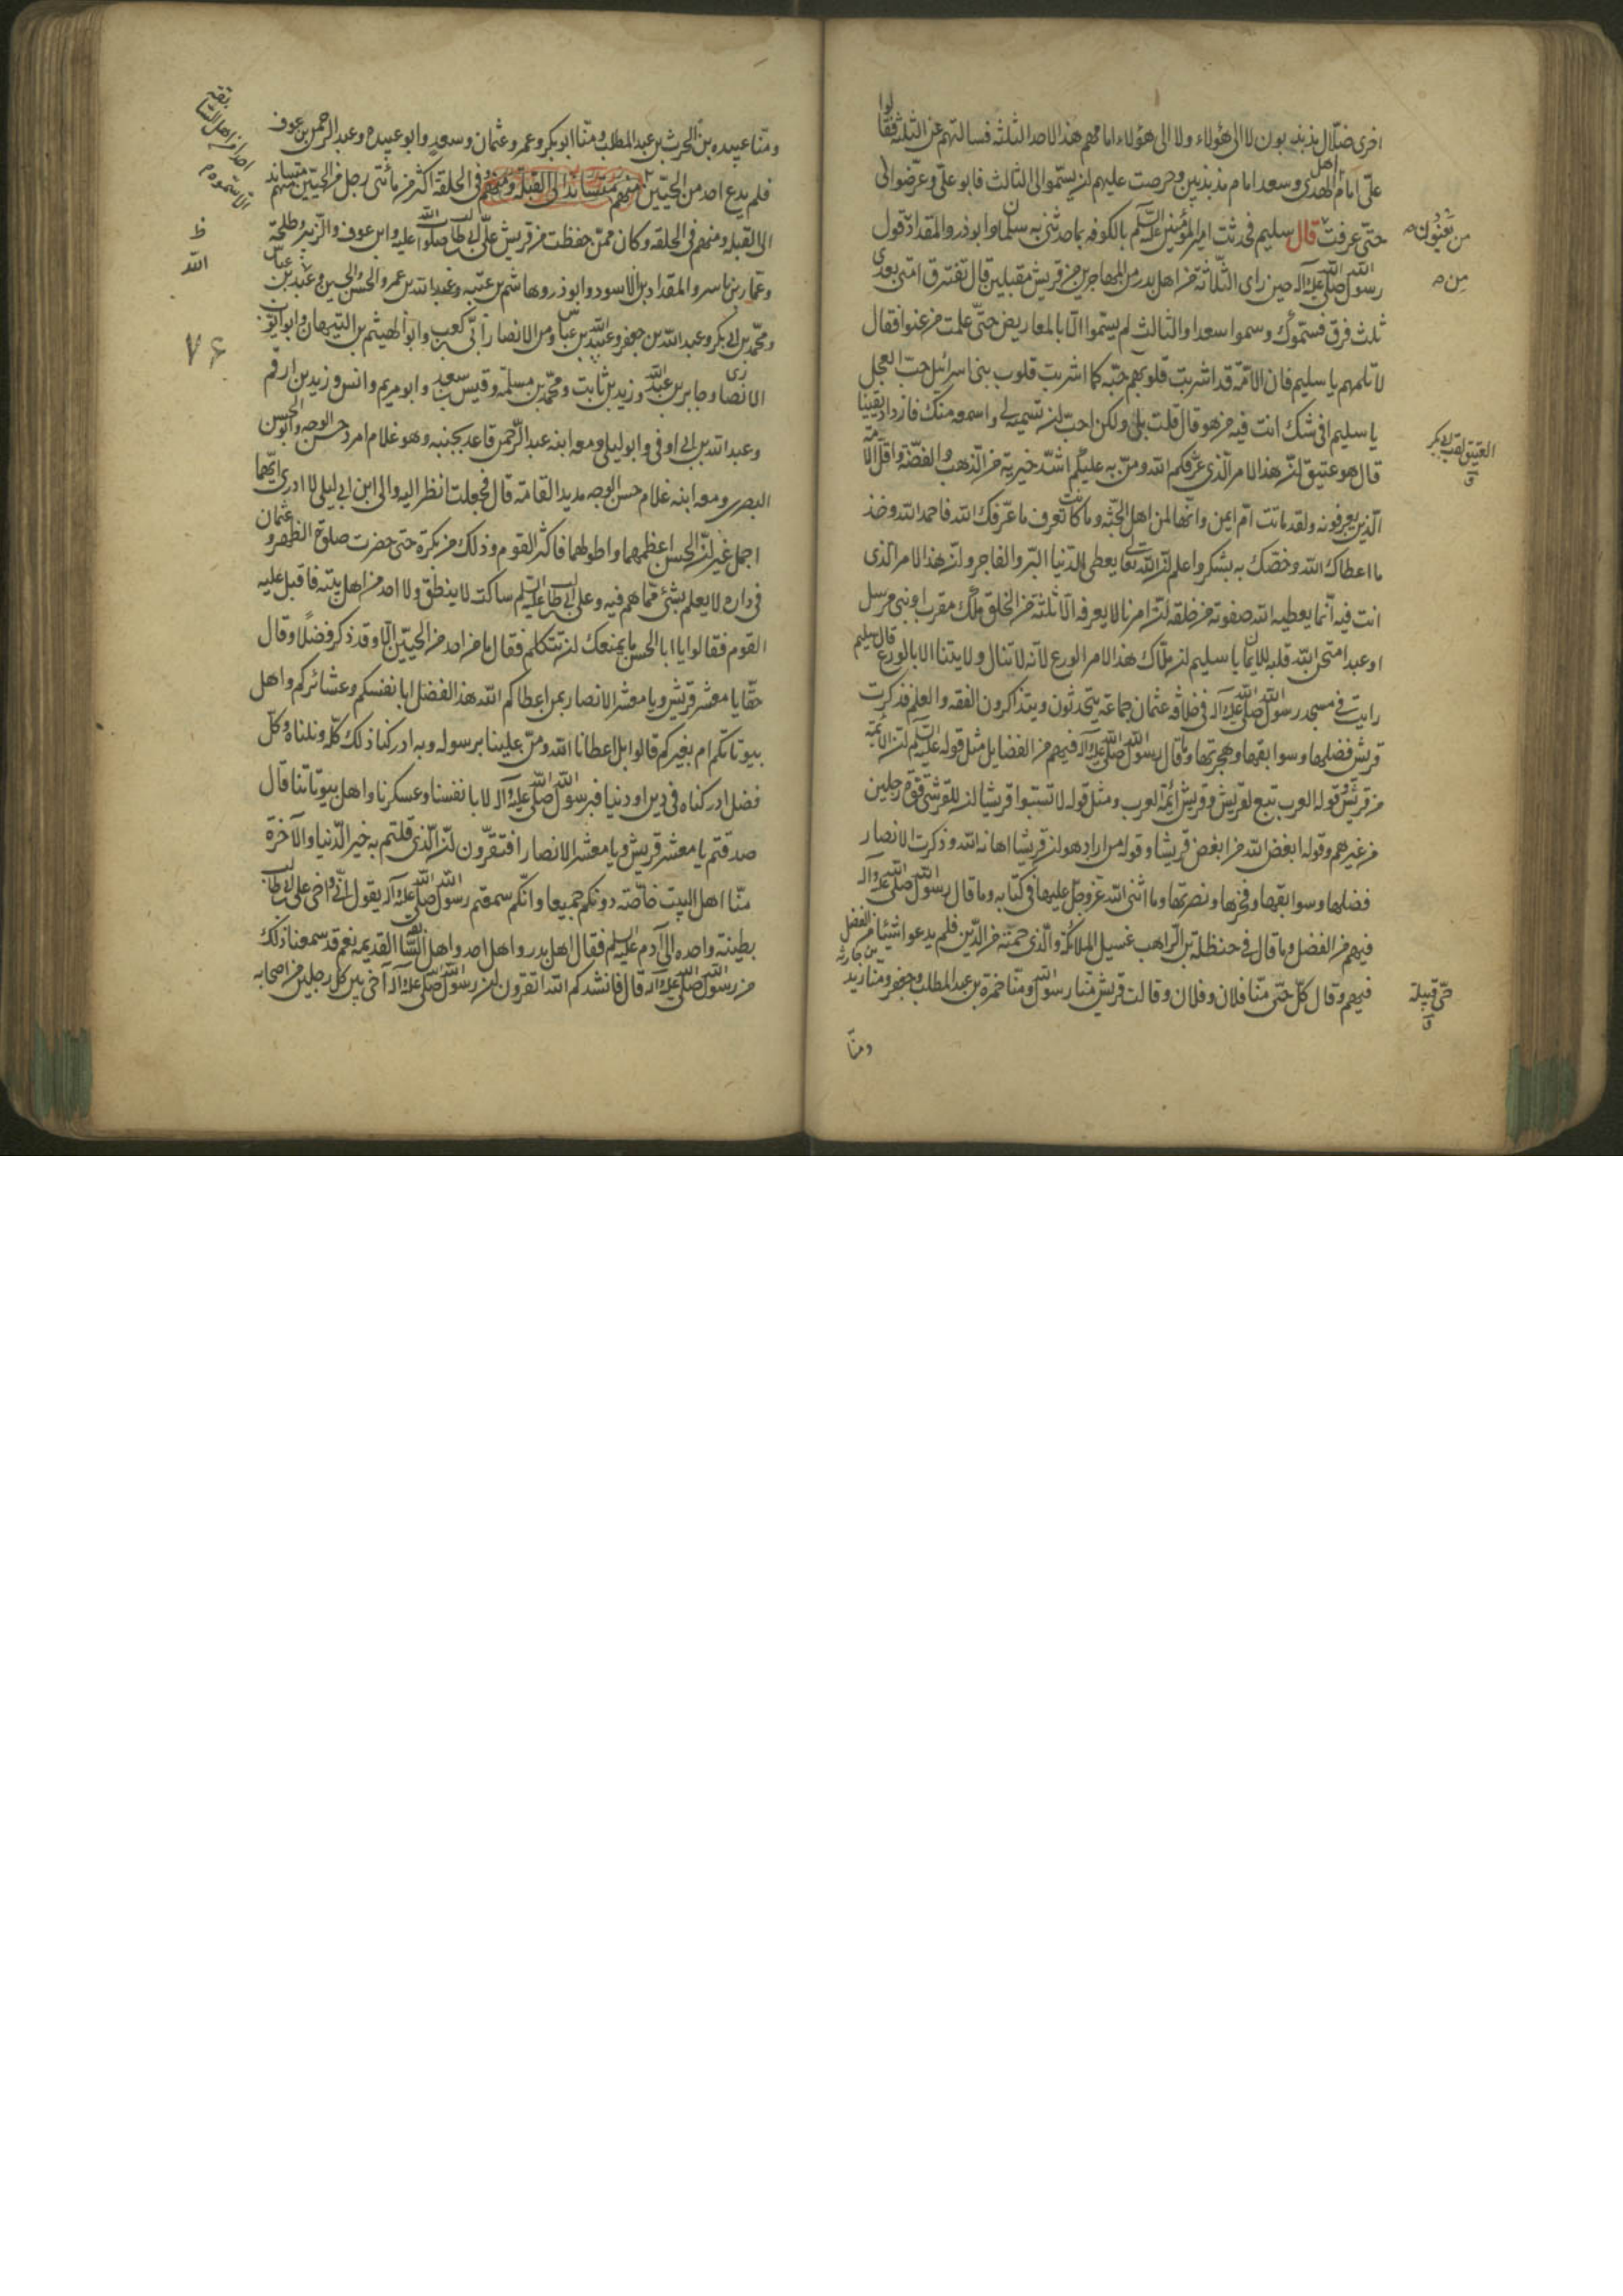 اخرى ضلّال مذبذبون لا الى هؤلاء ولا الى هؤلاء امامهم هذا الاحد الثلثة فسالتهم عن الثلثة فقالوا
علىّ امام الهدى وسعد امام مذبذبين وحرصت عليهم ان يسمّوا لى الثالث فابوا علىّ وعرّضوا لى
حتّى عرفت قال سليم فحدثت امير المؤمنين عليه السّلم بالكوفه بما حدثنى به سلمان وابوذر والمقداد قول
رسول الله صلى الله عليه وآله حين راى الثلاثة من اهل بدر من المهاجرين من قريش مقبلين قال تفترق امتى بعدى
ثلث فرق فسموك وسموا سعدا والثالث لم يسموا الّا بالمعاريض حتّى علمت من عنوا فقال
لا تلمهم يا سليم فان الامّة قد اشربت قلوبهم حبّه كما اشربت قلوب بنى اسرائيل حبّ العجل
يا سليم افى شك انت فيه من هو قال قلت بلى ولكن احبّ ان تسميه لى واسمعه منك فازداد يقينا
قال هو عتيق انّ هذا الامر الّذى عرّفكم الله ومنّ به عليكم اشدّ خيرية من الذهب والفضّة واقلّ الامّة
الّذين يعرفونه ولقد ماتت امّ ايمن وانّها لمن اهل الجنّة وما كانت تعرف ما عرّفك الله فاحمد الله وخذ
ما اعطاك الله وخصّك به بشكر واعلم ان الله تعالى يعطى الدّنيا البرّ والفاجر وانّ هذا الامر الذى
انت فيه انّما يعطيه الله صفوته من خلقه انّ امرنا لا يعرفه الّا ثلثة من الخلق ملك مقرب او نبى مرسل
او عبد امتحن الله قلبه للايمان يا سليم ان ملاك هذا الامر الورع لانّه لا تنال ولايتنا الا بالورع قال سليم
رايت فى مسجد رسول الله صلى الله عليه وآله فى خلافة عثمان جماعة يتحدثون ويتذاكرون الفقه والعلم فذكرت
قريش فضلها وسوابقها وهجرتها وما قال رسول الله صلى الله عليه وآله فيهم من الفضايل مثل قوله عليه السّلم ان الائمّة
من قريش وقوله العرب تبع لقريش وقريش ائمّة العرب ومثل قوله لا تسبّوا قريشا ان للقرشى قوّة رجلين
من غيرهم وقوله ابغض الله من ابغض قريشا وقوله من اراد هوان قريشا اهانه الله وذكرت الانصار
فضلها وسوابقها وفخرها ونصرتها وما اثنى الله عزوجل عليها فى كتابه وما قال رسول الله صلى الله عليه وآله
فيهم من الفضل وما قال فى حنظلة بن الراهب غسيل الملائكة والذى حمته من الدّبر فلم يدعوا شيئا من الفضل
فيهم وقال كلّ حىّ منّا فلان وفلان وقالت قريش منّا رسول الله ومنّا حمزة بن عبد المطلب وجعفر ومنّا زيد بن حارثه
ومنّا
من تعنون
من
العتيق لقب ابى بكر
ق
حىّ قبيلة
ق
ومنّا عبيده بن الحرث بن عبد المطلب ومنّا ابو بكر وعمر وعثمان وسعد وابو عبيده وعبد الرحمن بن عوف
فلم يدع احد من الحيّين منهم متساند الى القبلة ومنهم فى الحلقة اكثر من مأتى رجل من الحيّين منهم متساند
الى القبله ومنهم فى الحلقه وكان ممّن حفظت من قريش علىّ بن ابى طالب صلوات الله عليه وابن عوف والزبير وطلحة
وعمار بن ياسر والمقداد بن الاسود وابوذر وهاشم بن عتبه وعبد الله بن عمر والحسن والحسين وعبد بن عباس
ومحمّد بن ابى بكر وعبد الله بن جعفر وعبيد الله بن عباس ومن الانصار ابىّ بن كعب وابو الهيثم بن التيهان وابو ايوب
الانصارى وجابر بن عبد الله وزيد بن ثابت ومحمّد بن مسلمة وقيس بن سعد وابو مريم وانس وزيد بن ارقم
وعبد الله بن ابى اوفى وابو ليلى ومعه ابنه عبد الرّحمن قاعد بجنبه وهو غلام امرد حسن الوجه وابو الحسن
البصرى ومعه ابنه غلام حسن الوجه مديد القامة قال فجعلت انظر اليه والى ابن ابى ليلى لا ادرى ايّهما
اجمل غير ان الحسن اعظمهما واطولهما فاكثر القوم وذلك من بكرة حتى حضرت صلوة الظهر وعثمان
فى داره لا يعلم بشئ ممّا هم فيه وعلى بن ابى طالب عليه السّلم ساكت لا ينطق ولا احد من اهل بيته فاقبل عليه
القوم فقالوا يا ابا الحسن ما يمنعك ان تتكلم فقال ما من احد من الحيّين الّا وقد ذكر فضلا وقال
حقّا يا معشر قريش ويا معشر الانصار بمن اعطاكم الله هذا الفضل ابانفسكم وعشائركم واهل
بيوتاتكم ام بغيركم قالوا بل اعطانا الله ومنّ علينا برسوله وبه ادركنا ذلك كلّه ونلناه وكلّ
فضل ادركناه فى دين او دنيا فبرسول الله صلى الله عليه وآله لا بانفسنا وعسكرنا واهل بيوتاتنا قال
صدقتم يا معشر قريش ويا معشر الانصار افتقرّون ان الّذى قلتم به خير الدّنيا والآخرة
منّا اهل البيت خاصّة دونكم جميعا وانّكم سمعتم رسول الله صلى الله عليه وآله يقول انّى واخى على بن ابى طالب
بطينة واحده الى آدم عليه السلم فقال اهل بدر واهل احد واهل السّابقة القديمه نعم قد سمعنا ذلك
من رسول الله صلى الله عليه وآله قال فانشدكم الله اتقرون ان رسول الله صلى الله عليه وآله آخى بين كل رجلين من اصحابه
ظ
الله
٧۶